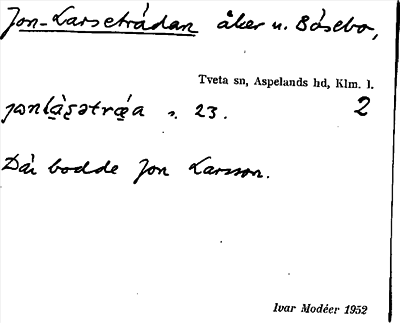 Jon-Larseträdan åker u. Bösebo,
Tveta sn, Aspelands hd, Klm. l.
2
s. 23.
Där bodde Jon Larsson.
Ivar Modéer 1952